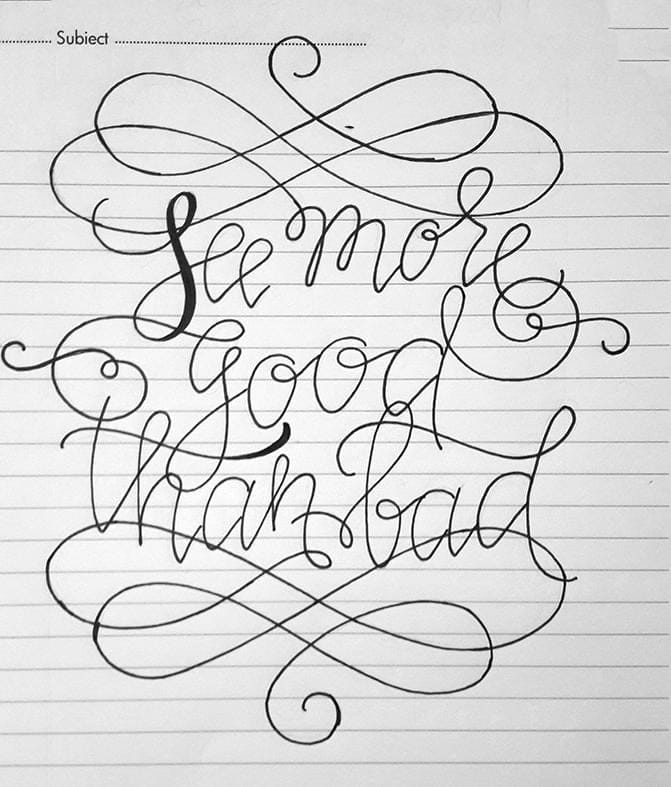 Subject
See more
good
than bad